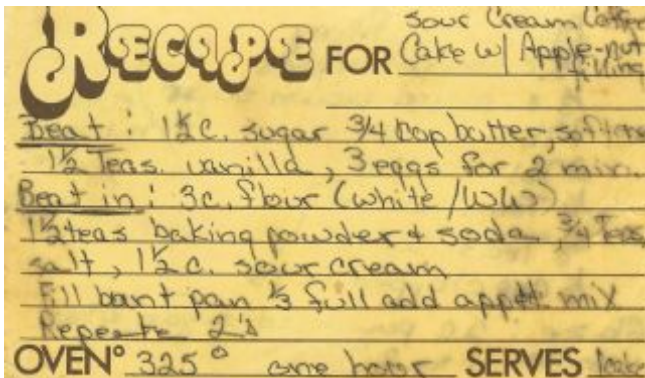 Sour Cream Coffee
RECIPE FOR Cake w/ Apple-nut
filling
Beat: 1½ c. sugar 3/4 cup butter, softene
1½ Teas. vanilla, 3 eggs for 2 min.
Beat in: 3 c. flour (white / WW)
1½ teas baking powder & soda, 3/4 Teas
salt, 1½ c. sour cream
Fill bunt pan ⅓ full add mix
Repeate 2's
OVEN° 325° one hour SERVES 1 cake